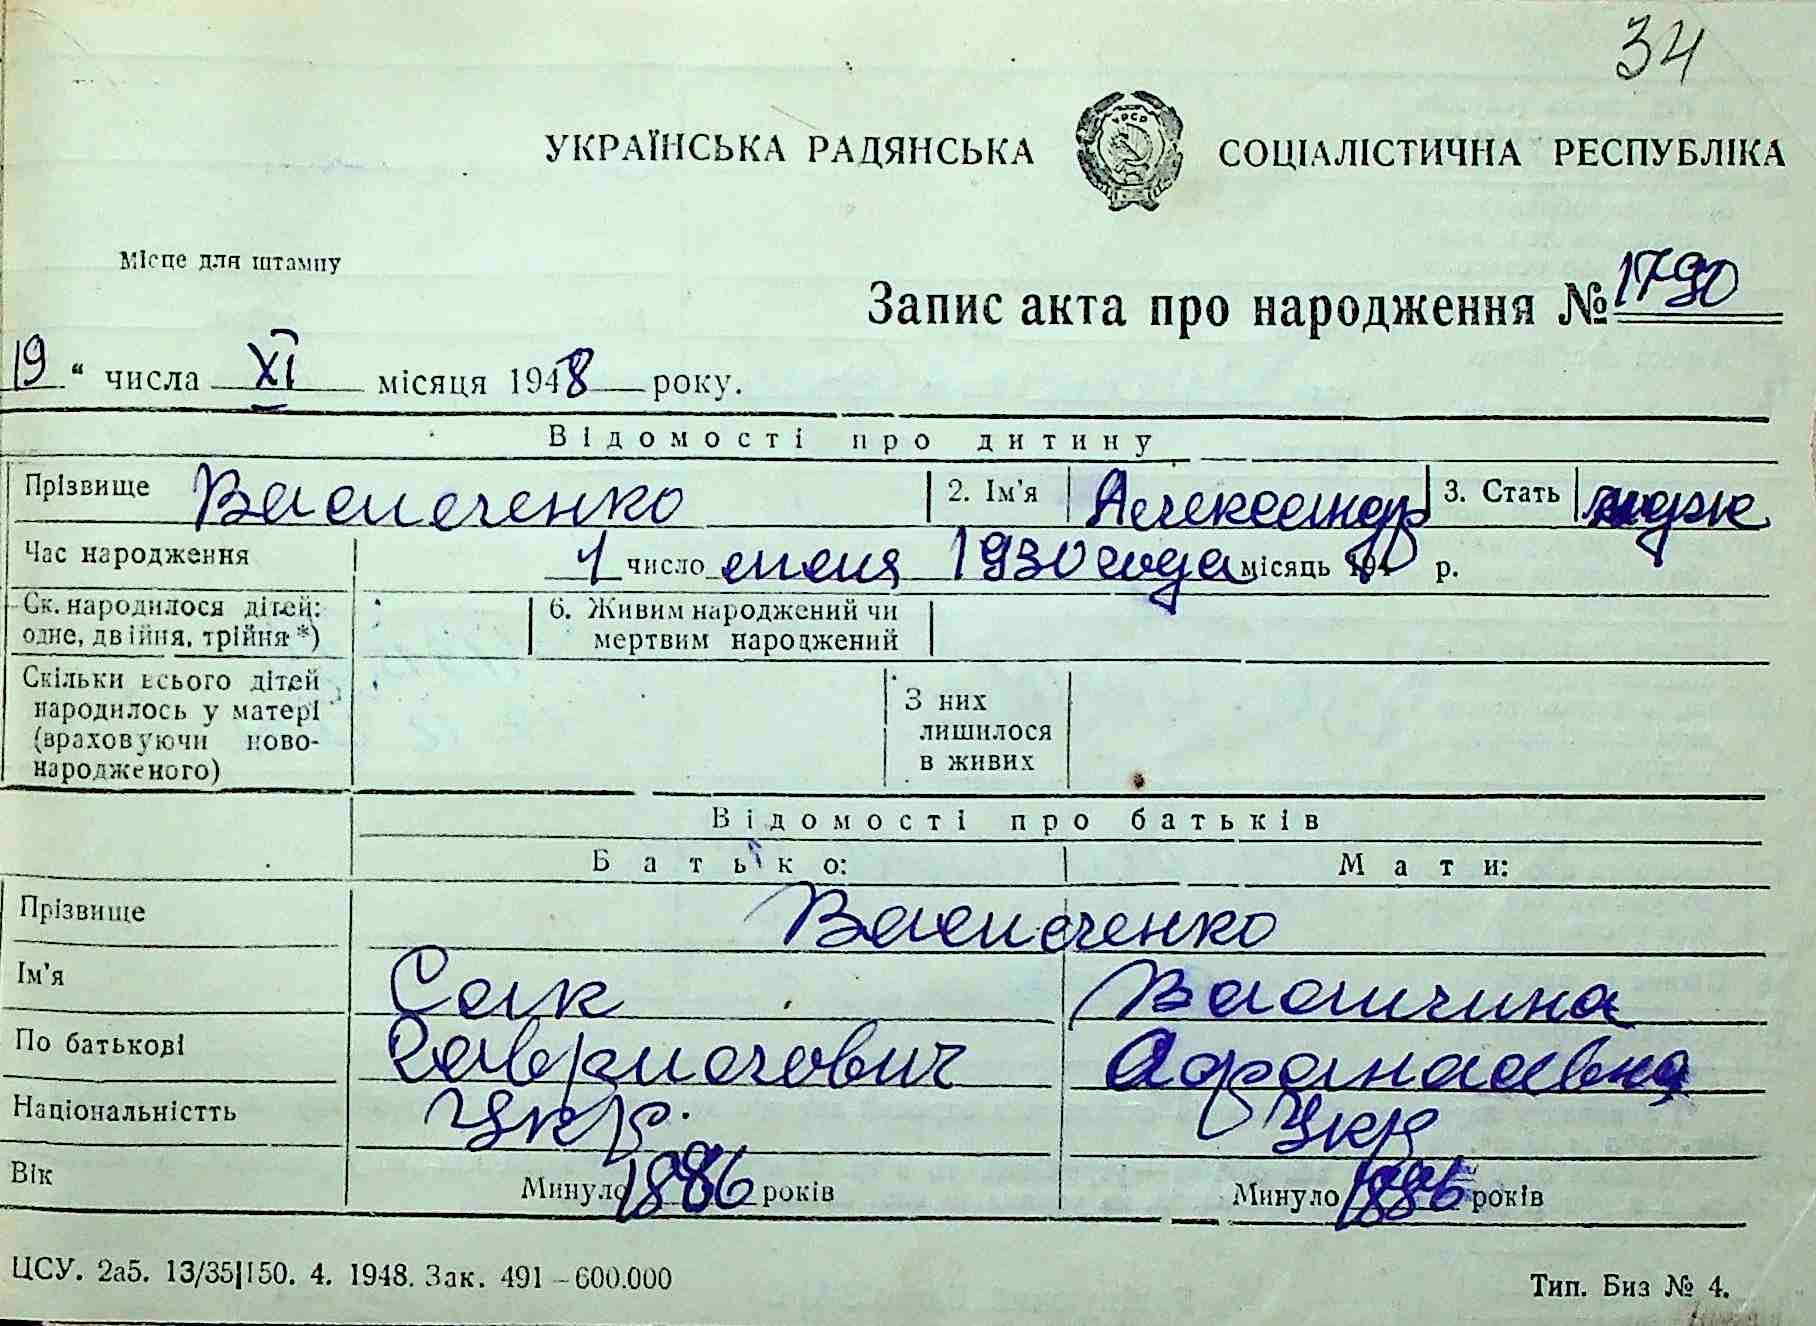 34
УКРАЇНСЬКА РАДЯНСЬКА СОЦІАЛІСТИЧНА РЕСПУБЛІКА
УРСР
Місце для штампу
Запис акта про народження № 1790
19 " числа XI місяця 1948 року.
Відомості про дитину
Прізвище Василенко 2. Ім'я Александр 3. Стать
Час народження 1 число 1930 года місяць 194 р.
Ск. народилося дітей: одне, двійня, трійня *) 6. Живим народжений чи мертвим народжений
Скільки всього дітей народилось у матері (враховуючи ново-народженого) З них лишилося в живих
Відомості про батьків
Батько: Мати:
Прізвище Василенко
Ім'я Сак
По батькові Гаврилович Афанасевна
Національністть Укр. Укр
Вік Минуло 1886 років Минуло 1886 років
ЦСУ. 2а5. 13/35|150. 4. 1948. Зак. 491 – 600.000
Тип. Биз № 4.